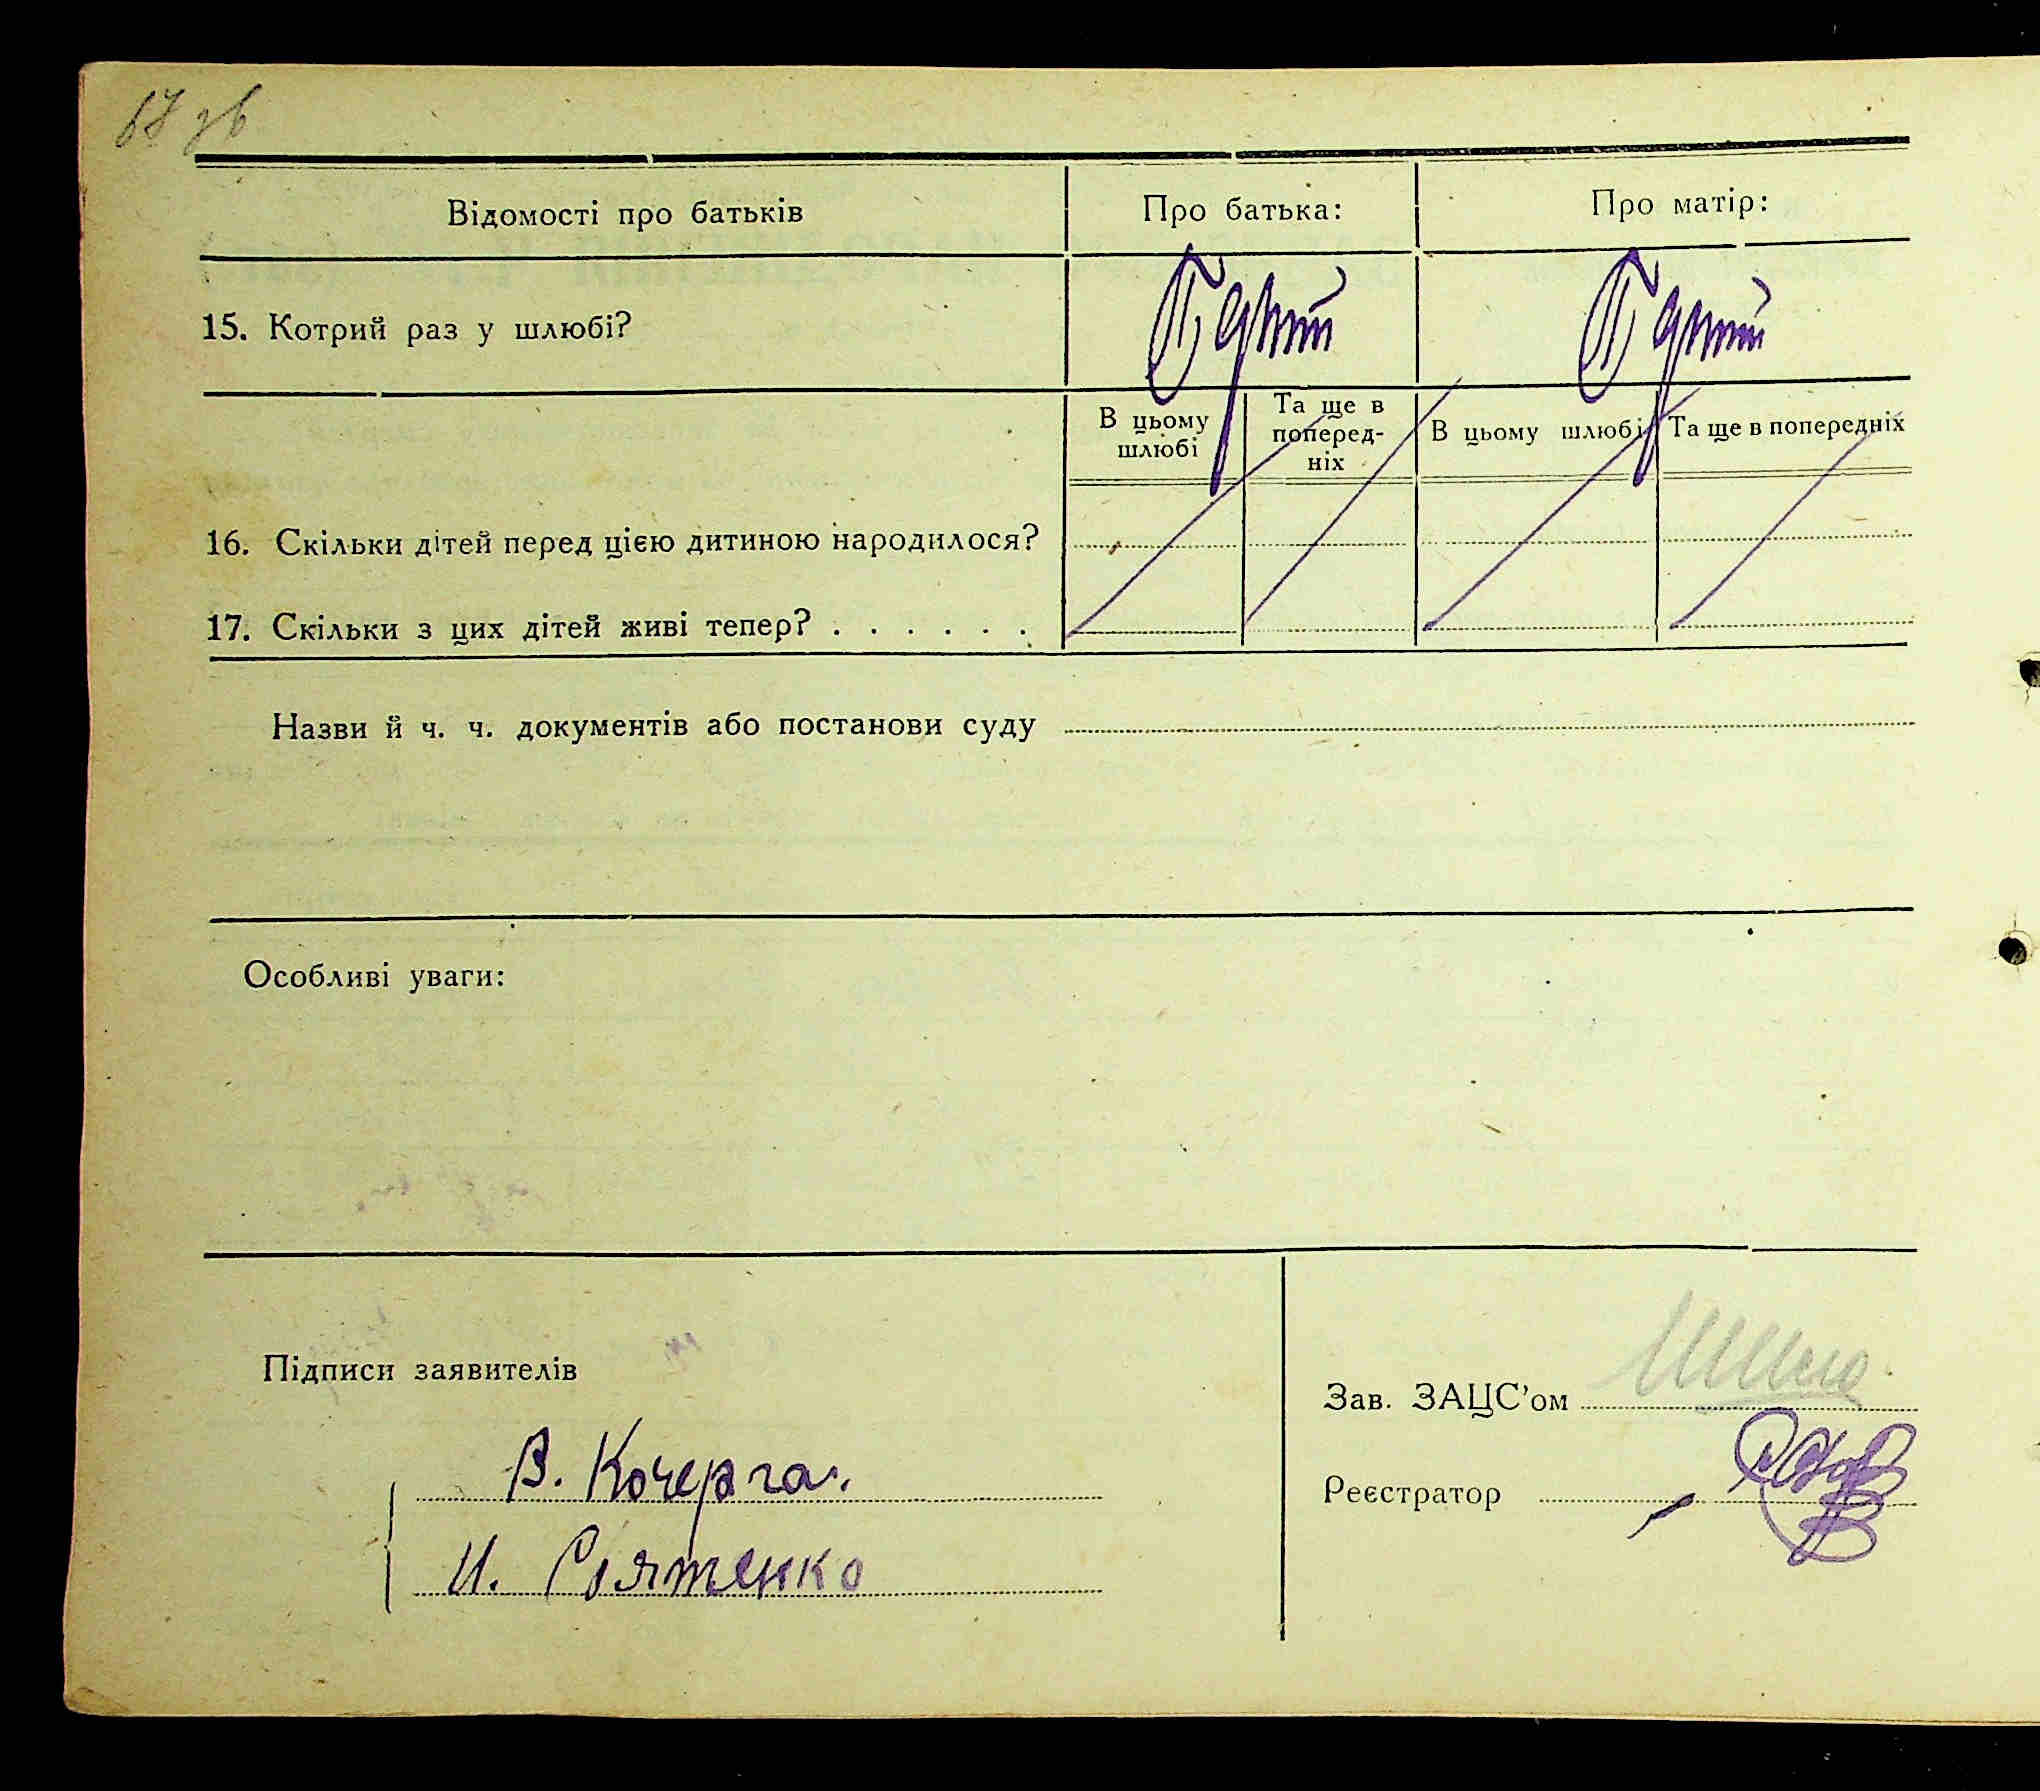 67 зв
Відомості про батьків Про батька: Про матір:
15. Котрий раз у шлюбі? Перший Перший
В цьому шлюбі Та ще в поперед-ніх В цьому шлюбі Та ще в попередніх
16. Скільки дітей перед цією дитиною народилося?
17. Скільки з цих дітей живі тепер? . . . . . .
Назви й ч. ч. документів або постанови суду
Особливі уваги:
Підписи заявителів
Зав. ЗАЦС’ом
В. Кочерга.
Реєстратор
И. Святенко